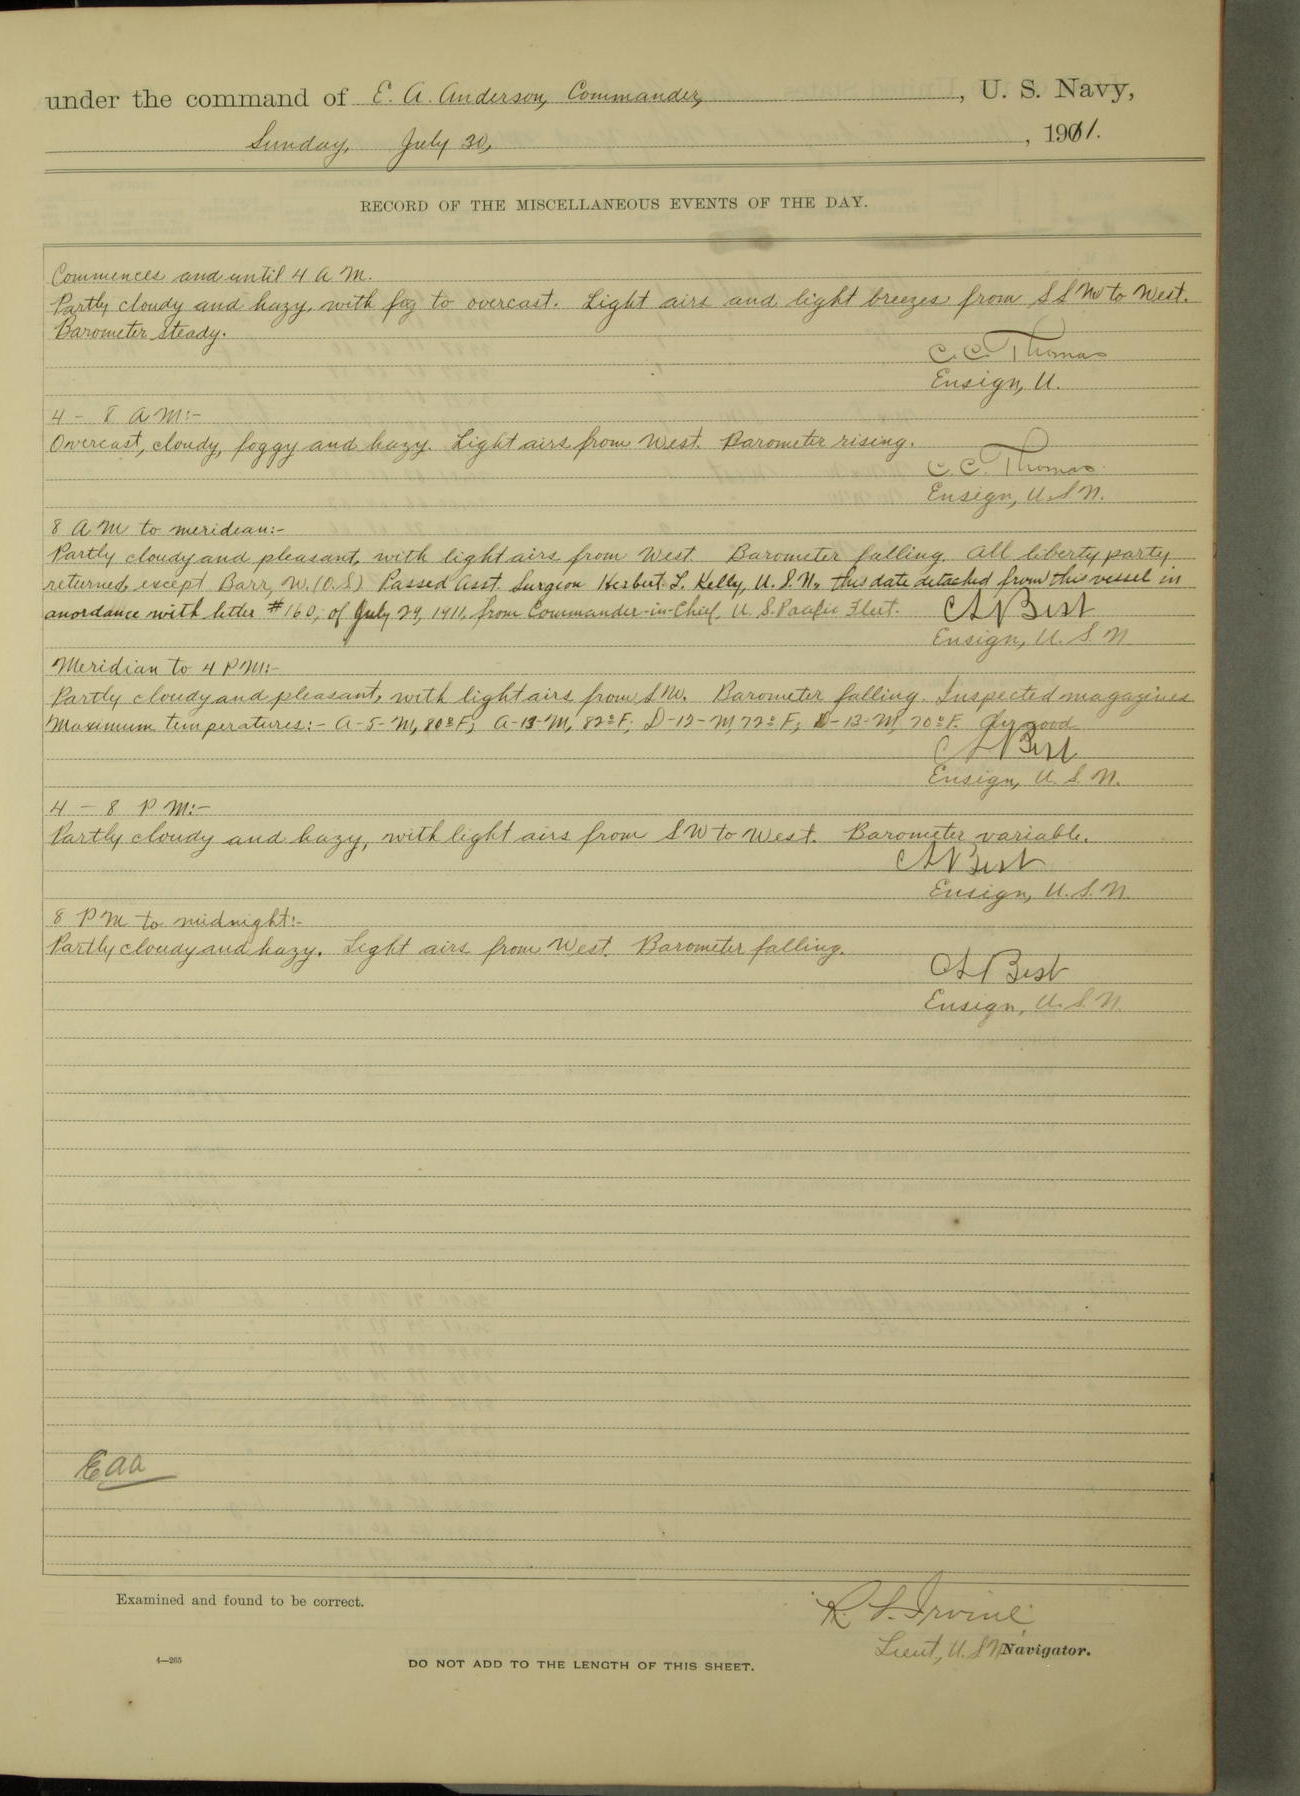 under the command of E. A. Anderson, Commander, , U. S. Navy,
Sunday, July 30, , 1911.
RECORD OF THE MISCELLANEOUS EVENTS OF THE DAY.
Commences and until 4 A M.
Partly cloudy and hazy, with fog to overcast. Light airs and light breezes from SSW to West.
Barometer steady.
C. C. Thomas
Ensign, U.
4 - 8 A M:-
Overcast, cloudy, foggy and hazy. Light airs from West. Barometer rising.
C. C. Thomas
Ensign, U.S.N.
8 A M to meridian:-
Partly cloudy and pleasant, with light airs from West. Barometer falling. All liberty party
returned, except Barr, W. (O.S.) Passed Asst. Surgeon Herbert L. Kelly, U.S.N., this date detached from this vessel in
accordance with letter #160, of July 29, 1911, from Commander-in-Chief, U. S. Pacific Fleet. C L Best
Ensign, U. S. N.
Meridian to 4 P M:-
Partly cloudy and pleasant, with light airs from S W. Barometer falling. Inspected magazines
Maximum temperatures:- A-5-M, 80° F; A-13-M, 82° F; D-12-M, 72° F; D-13-M, 70° F. good
C L Best
Ensign, U. S. N.
4 - 8 P M:-
Partly cloudy and hazy, with light airs from S W to West. Barometer variable.
C L Best
Ensign, U. S. N.
8 P M to midnight:-
Partly cloudy and hazy. Light airs from West. Barometer falling.
C L Best
Ensign, U. S. N.
E a a
Examined and found to be correct.
R. S. Irvine
Lieut, U. S N Navigator.
4—265
DO NOT ADD TO THE LENGTH OF THIS SHEET.